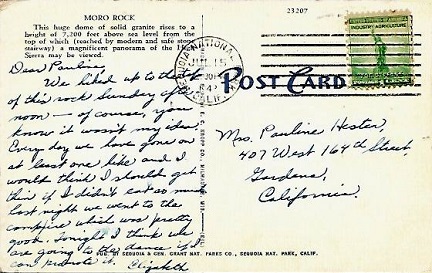 MORO ROCK
This huge dome of solid granite rises to a
height of 7,200 feet above sea level from the
top of which (reached by modern and safe stone
stairway) a magnificent panorama of the
Sierra may be viewed.
23207
NATIONAL
JUL 15
CALIF.
UNITED STATES OF AMERICA
INDUSTRY AGRICULTURE
POST CARD
Dear Pauline
We hiked up to the top
of this rock Sunday after
noon - of course, you
know it wasn't my idea.
Every day we have gone on
at least one hike and I
would think I should get
thin if I didn't eat so much
Last night we went to the
campfire which was pretty
good. Tonight I think we
are going to the dance if I
can promote it. Elizabeth
Mrs. Pauline Hester,
407 West 164th Street,
Gardena,
California.
PUB. BY SEQUOIA & GEN. GRANT NAT. PARKS CO., SEQUOIA NAT. PARK, CALIF.